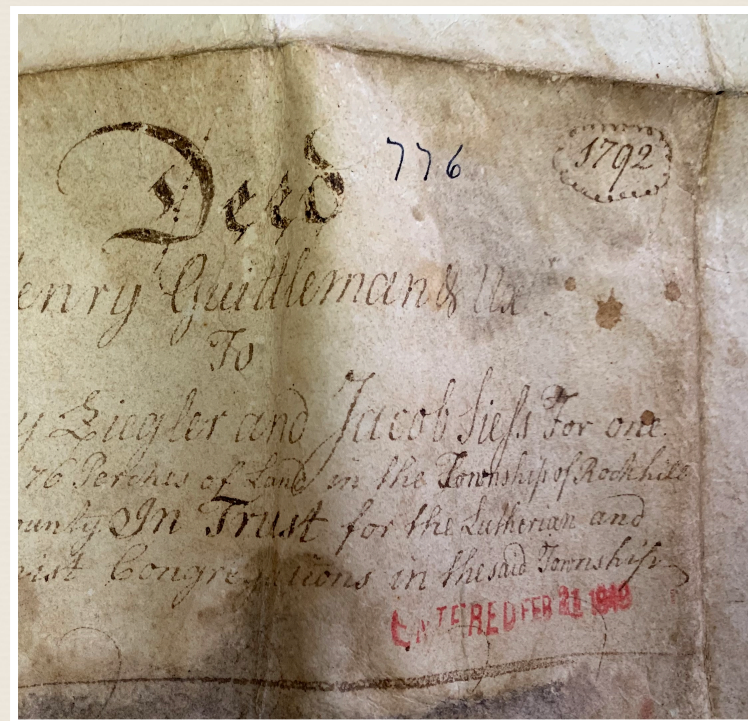 Deed 776 1792
enry Guittleman & Ux
To
y Ziegler and Jacob Sieſs For one
76 Perches of Land in the Township of Rockhill
ounty In Trust for the Lutherian and
Congregations in the said Township
ENTERED FEB 21 1949